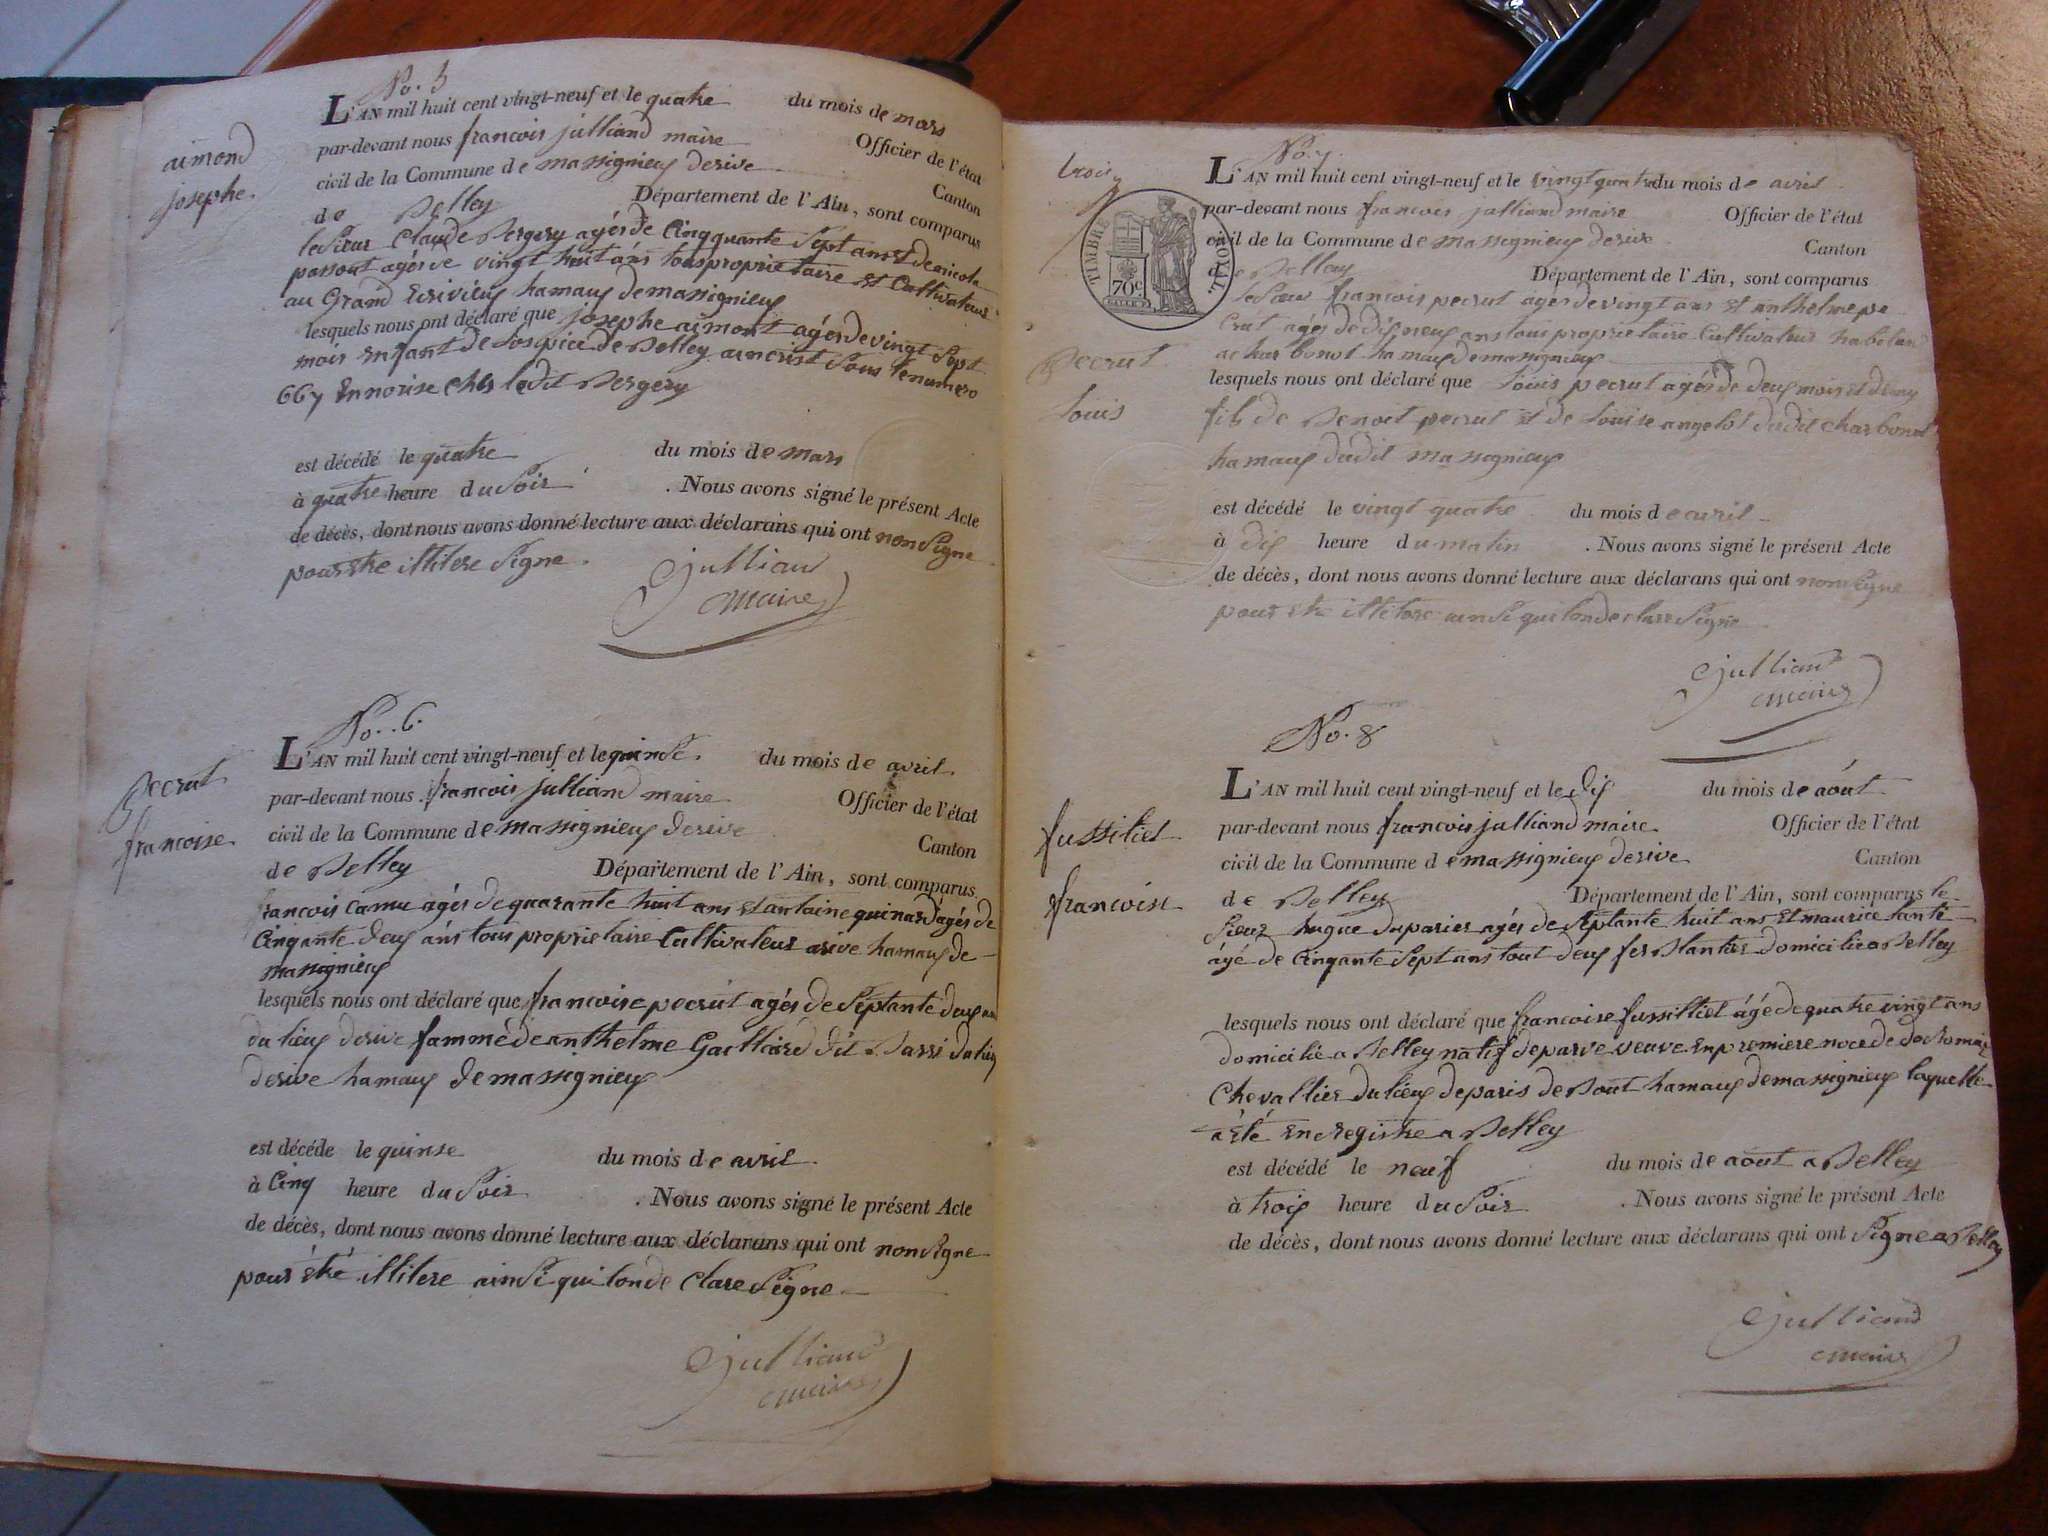 No. 5
L'AN mil huit cent vingt-neuf et le quatre du mois de mars
par-devant nous francois julliand maire Officier de l'état
civil de la Commune de massignieux derive Canton
de Belley Département de l'Ain, sont comparus
aimond
josephe.
le Sieur Claude Bergery agés de Cinqquante Sept ans et de nicola
passout agés de vingt huit ans tous proprietaire et Cultivateur
au Grand Ecrivieux hamaux de massignieux
lesquels nous ont déclaré que josephe aimont agés de vingt Sept
mois enfant de Lospice de Belley aincrist Sous le numero
667 En norise ches ledit Bergery
est décédé le quatre du mois de mars
à quatre heure du Soir . Nous avons signé le présent Acte
de décès, dont nous avons donné lecture aux déclarans qui ont non Signe
pour etre illitere Signe.
julliand
maire
No. 6.
L'AN mil huit cent vingt-neuf et le quinse. du mois de avril.
par-devant nous francois julliand maire Officier de l'état
civil de la Commune de massignieux derive Canton
de Belley Département de l'Ain, sont comparus
pecrut
francoise
francois camu agés de quarante huit ans et antoine quinard agés de
Cinqante deux ans tous proprietaire Cultivateur arive hamaux de
massignieux
lesquels nous ont déclaré que francoise pecrut agés de Septante deux ans
du lieux derive famme de anthelme Gaillard dit Barri du lieu
derive hamaux de massignieux
est décéde le quinse du mois de avril.
à Cinq heure du Soir . Nous avons signé le présent Acte
de décès, dont nous avons donné lecture aux déclarans qui ont non Signe
pour etre illitere ainsi qui lon de Clare Signe
julliand
maire
trois
TIMBRE ROYAL
70c
No. 7.
L'AN mil huit cent vingt-neuf et le vingt quatre du mois de avril
par-devant nous francois julliand maire Officier de l'état
civil de la Commune de massignieux derive Canton
de Belley Département de l'Ain, sont comparus
le Sieur francois pecrut agés de vingt ans et anthelme pe
crut agés de dix neuf ans tous proprietaire Cultivateur habitant
a charbonot hamaux de massignieux
pecrut
Louis
lesquels nous ont déclaré que Louis pecrut agés de deux mois et demy
fils de Benoet pecrut et de Louise angelot dudit charbonot
hamaux dudit massignieux
est décédé le vingt quatre du mois de avril
à dix heure du matin . Nous avons signé le présent Acte
de décès, dont nous avons donné lecture aux déclarans qui ont non Signe
pour etre illitere ainsi que lon declare Signe
julliand
maire
No. 8
L'AN mil huit cent vingt-neuf et le dix du mois de aout
par-devant nous francois julliand maire Officier de l'état
civil de la Commune de massignieux derive Canton
de Belley Département de l'Ain, sont comparus le
fussiliet
francoise
Sieur hugue duparier agés de Septante huit ans et maurice tante
agé de Cinqante Sept ans tout deux ferblantier domicilie a Belley
lesquels nous ont déclaré que francoise fussilliet agé de quatre vingt ans
domicilié a Belley natif de parve veuve en premiere noce de
Chevallier du lieux de paris de Bout hamaux de massignieux laquelle
a été en registre a Belley
est décédé le neuf du mois de aout a Belley
à trois heure du Soir . Nous avons signé le présent Acte
de décès, dont nous avons donné lecture aux déclarans qui ont Signe a Belley
julliand
maire